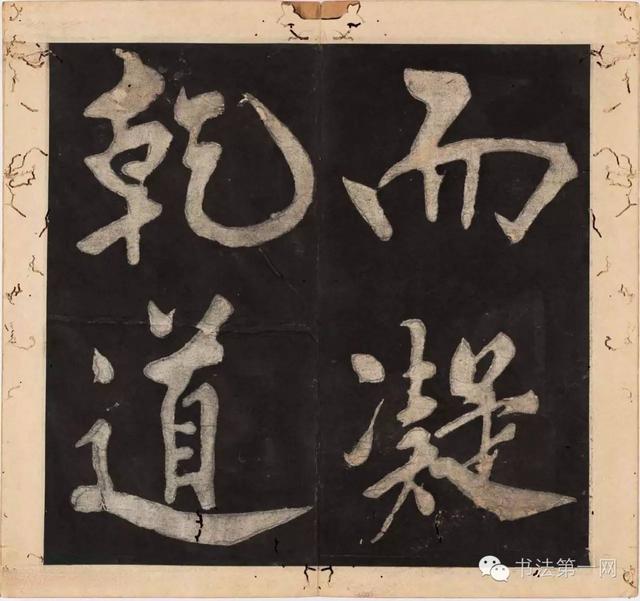 而凝
乾道
书法第一网